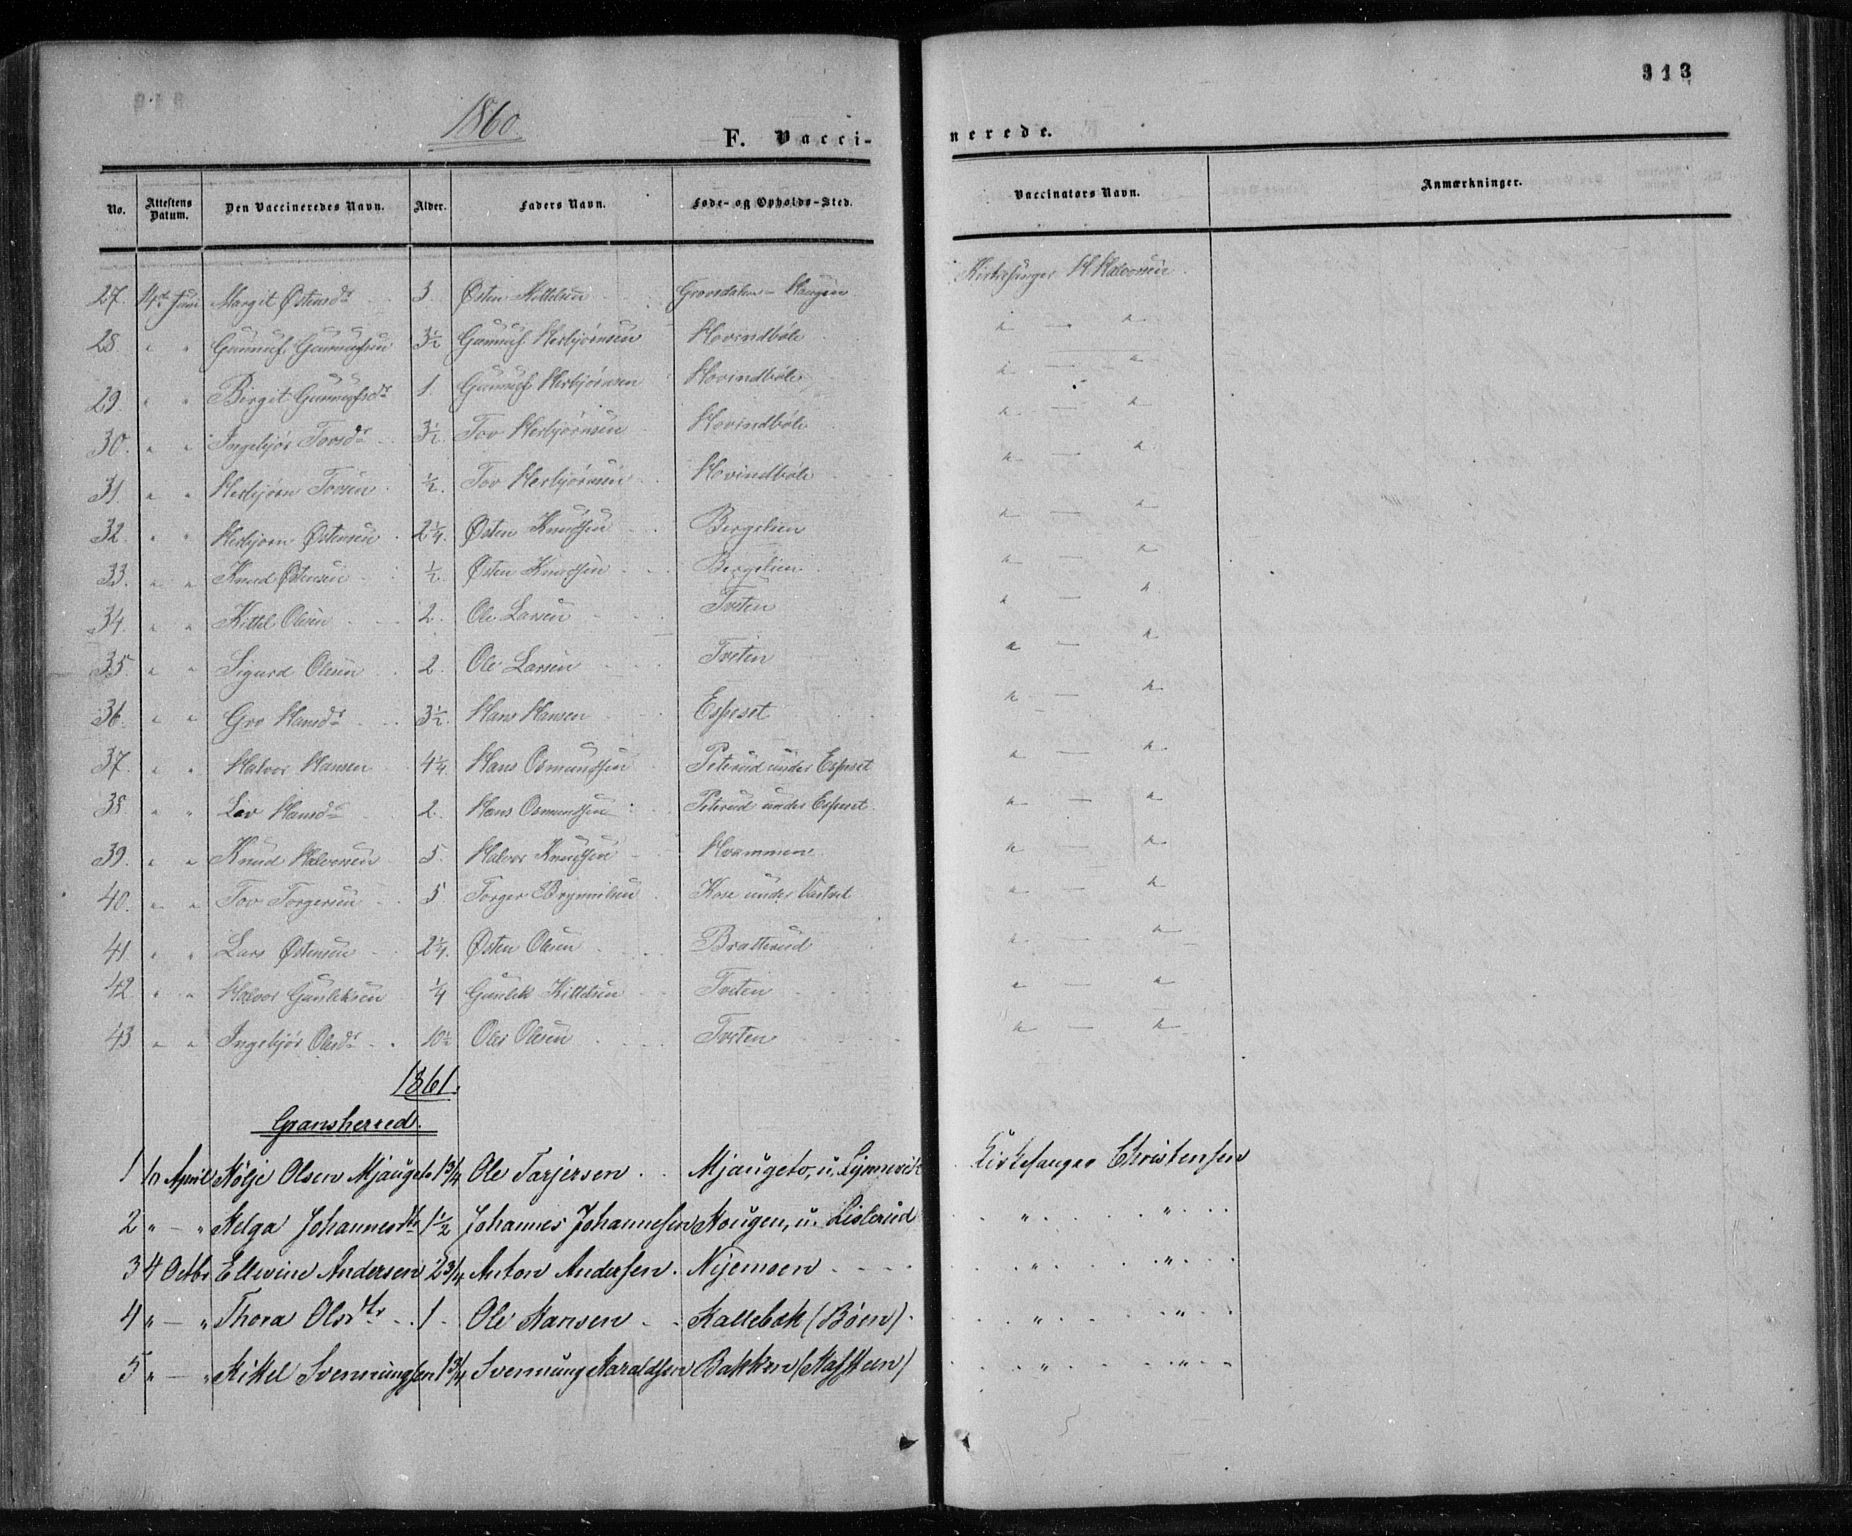 313
1860
F. Vacci-
nerede.
No. Attestens Datum. Den Vaccineredes Navn. Alder. Faders Navn. Føde- og Opholds-Sted. Vaccinators Navn. Anmærkninger.
27. 14de Juni Margit Østensdr 3 Østen Kittelsen Grovsdalen - Haugen Kirkesanger H. Halvorsen
28 " " Gunnuf Gunnufsen 3½ Gunnuf Herbjørnsen Hovindbøle " — "
29. " " Birgit Gunnufsdr 1. Gunnuf Herbjørnsen Hovindbøle " — "
30. " " Ingebjør Tovsdr 3½ Tov Herbjørnsen Hovindbøle " — "
31. " " Herbjørn Tovsen ½. Tov Herbjørnsen Hovindbøle " — "
32. " " Herbjørn Østensen 2¼. Østen Knudsen Bergelien " — "
33. " " Knud Østensen ½. Østen Knudsen Bergelien " — "
34. " " Kittil Olsen 2. Ole Larsen Tveten " — "
35. " " Sigurd Olsen 2 Ole Larsen Tveten " — "
36. " " Gro Hansdr 3½. Hans Hansen Espeset " — "
37. " " Halvor Hansen 4¼ Hans Osmundsen Peterud under Espeset " — "
38. " " Liv Hansdr 2. Hans Osmundsen Peterud under Espeset. " — "
39. " " Knud Halvorsen 5. Halvor Knudsen Hvammen " — "
40. " " Tov Torgersen 5 Torger Brynnilsen Kase under " — "
41 " " Lars Østensen 2¼. Østen Olsen Bratterud " — "
42. " " Halvor Gunleksen ¼ Gunlek Kittelsen Tveten " — "
43 " " Ingebjør Olesdr 10½ Oles Olesen Tveten " — "
1861.
Gransherred.
1 6 April Kølje Olsen Mjaugeto 1¾ Ole Tarjersen Mjaugeto, u. Lynnevik Kirkesanger Christensen
2 " — " Helga Johannesdtr 1½ Johannes Johannesen Hougen, u. Lislerud " "
3 4 Octbr Ellevine Andersen 2¾ Anton Andersen. Nyemoen " "
4 " — " Thora Olsdtr 1 Ole Hansen Kallebæk (Bøen) " "
5 " — " Kikel Svennungsen 1¾ Svennung Haraldsen Bakken (Haftten) " "